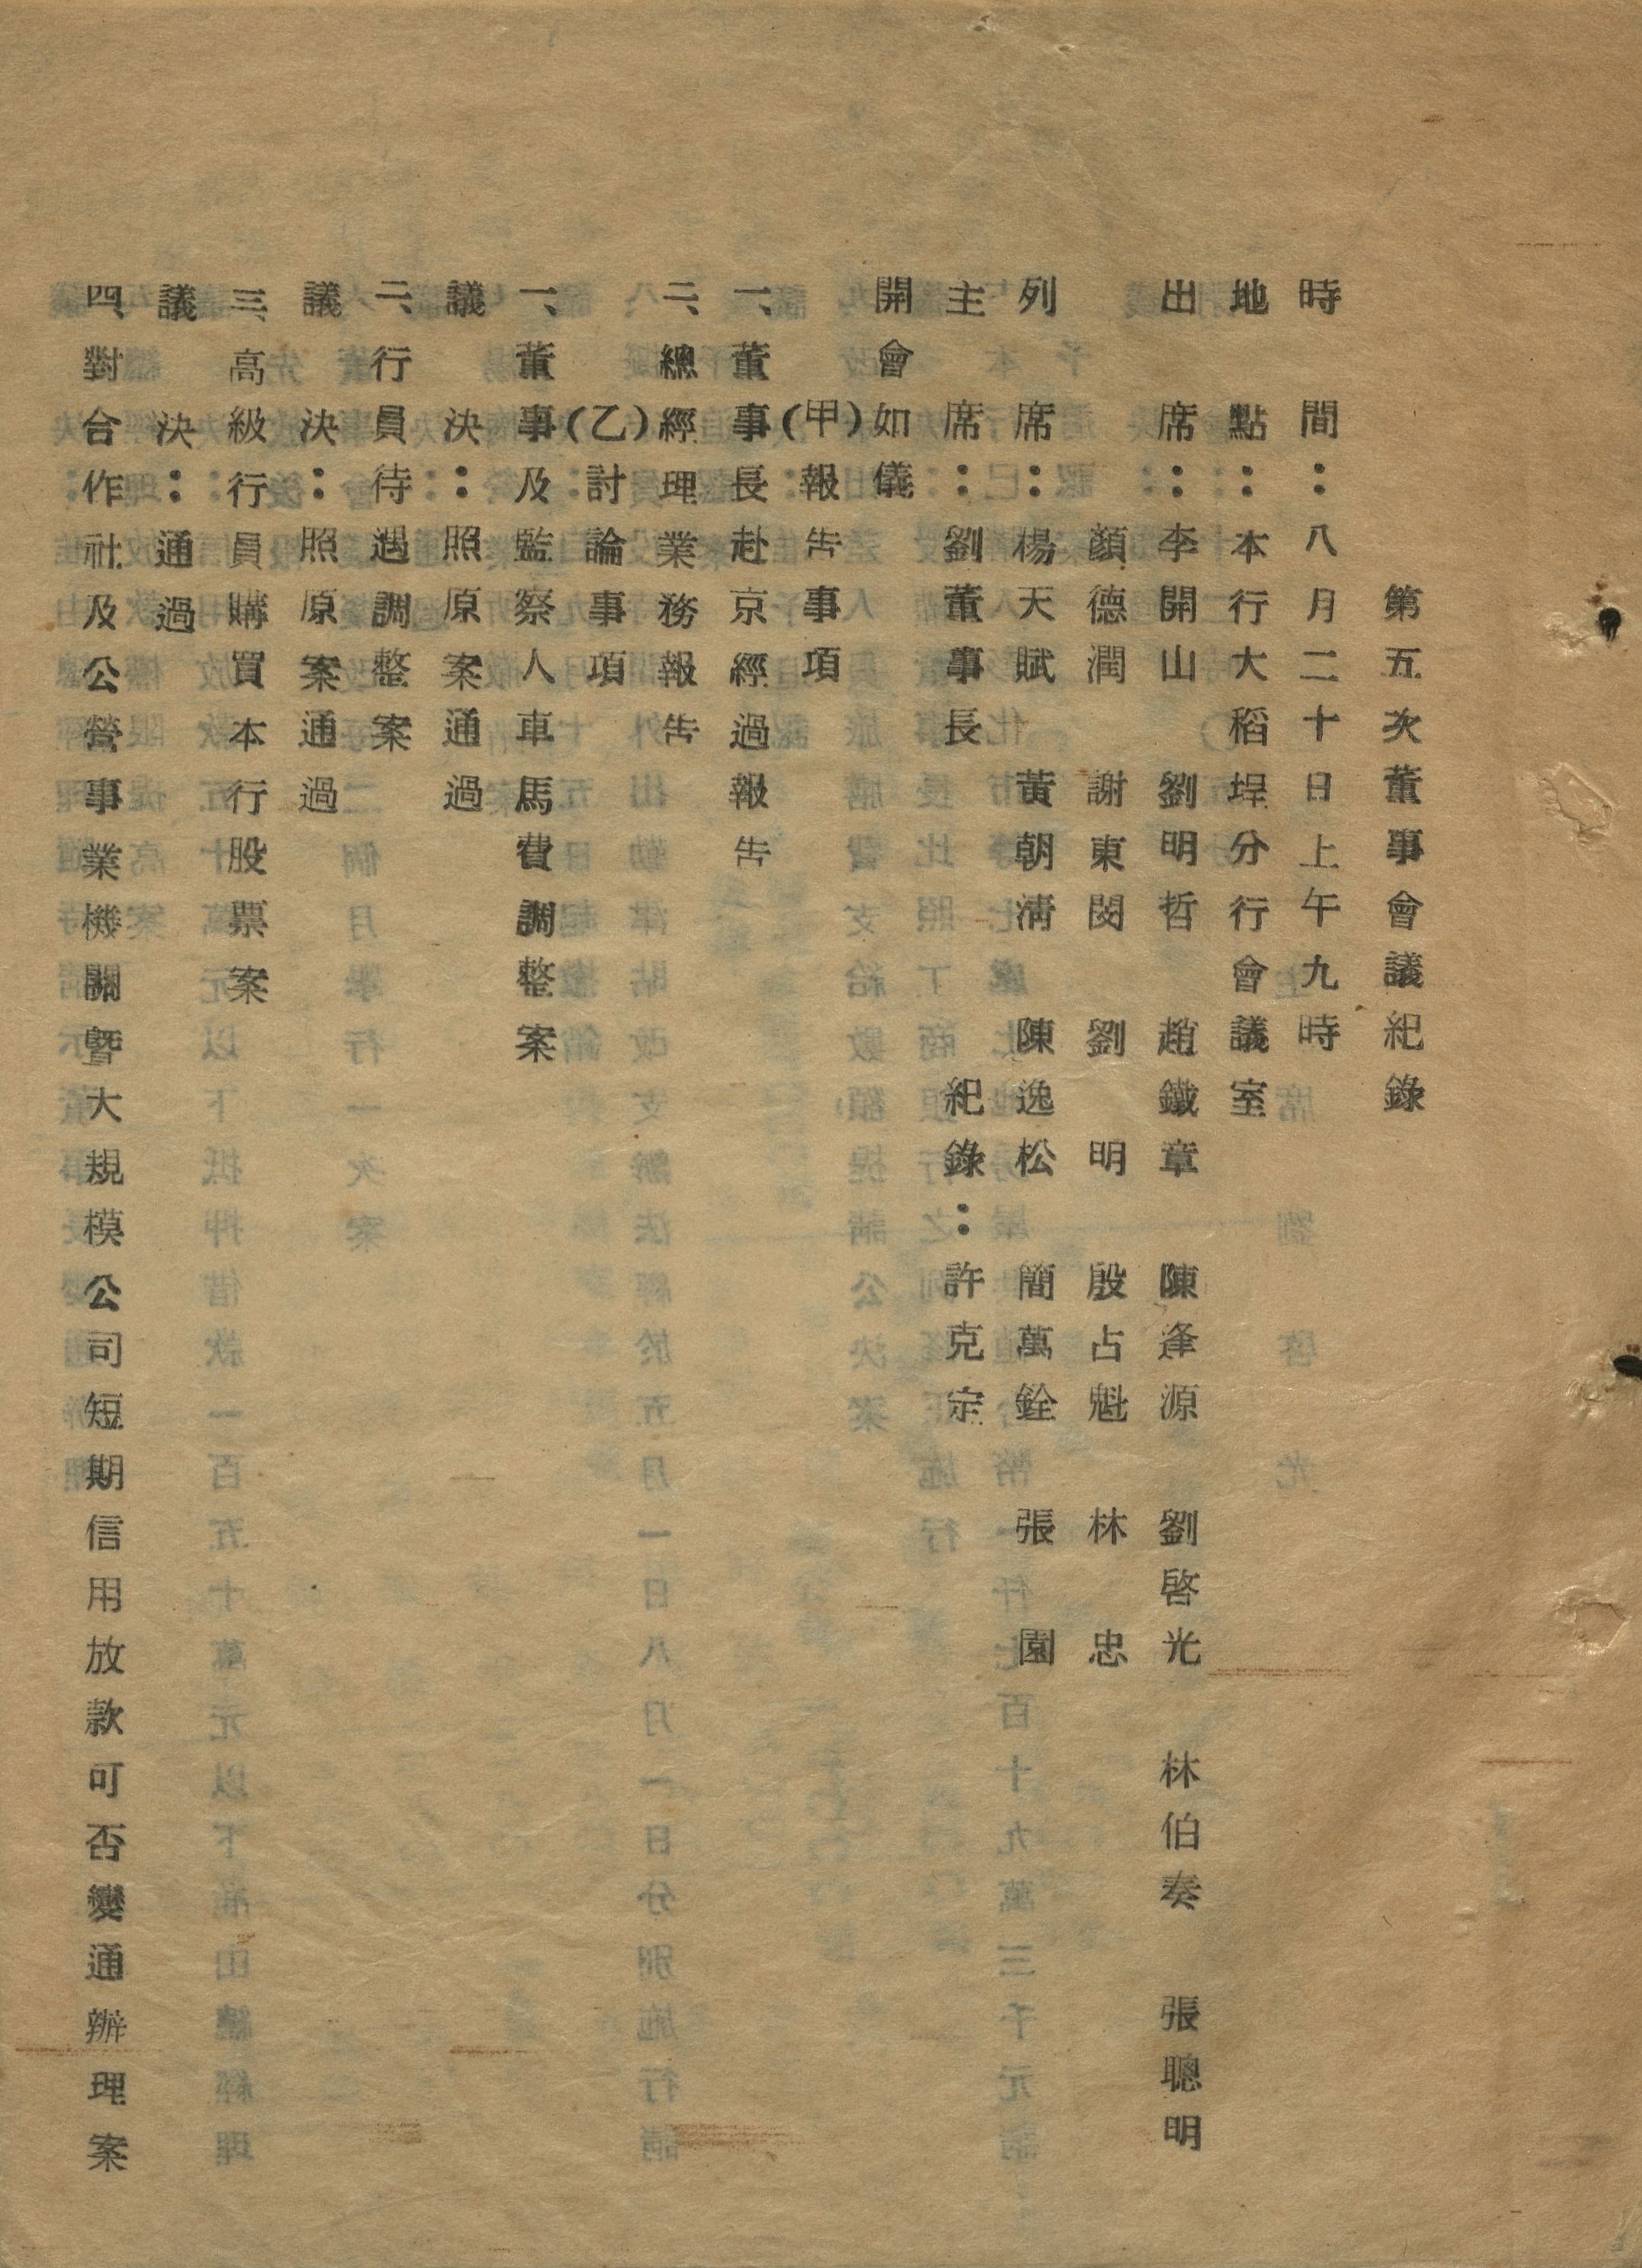 第五次董事會議紀錄
時間：八月二十日上午九時
地點：本行大稻埕分行會議室
出席：李開山 劉明哲 趙鐵章 陳逢源 劉啓光 林伯奏 張聰明
顏德潤 謝東閔 劉明 殷占魁 林忠
列席：楊天賦 黃朝清 陳逸松 簡萬銓 張園
主席：劉董事長 紀錄：許克宗
開會如儀
（甲）報告事項
一、董事長赴京經過報告
二、總經理業務報告
（乙）討論事項
一、董事及監察人車馬費調整案
議決：照原案通過
二、行員待遇調整案
議決：照原案通過
三、高級行員購買本行股票案
議決：通過
四、對合作社及公營事業機關暨大規模公司短期信用放款可否變通辦理案